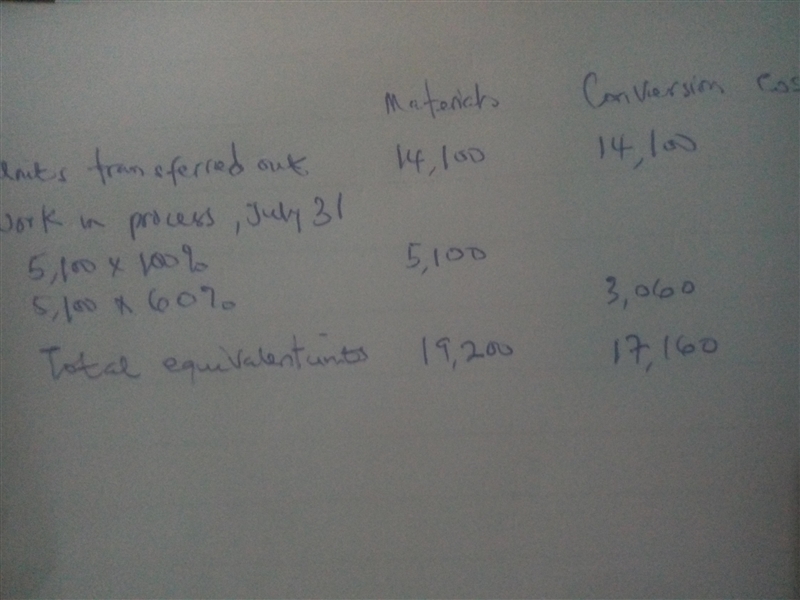 Materials Conversion Cos
Units transferred out 14,100 14,100
Work in process, July 31
5,100 x 100% 5,100
5,100 x 60% 3,060
Total equivalent units 19,200 17,160